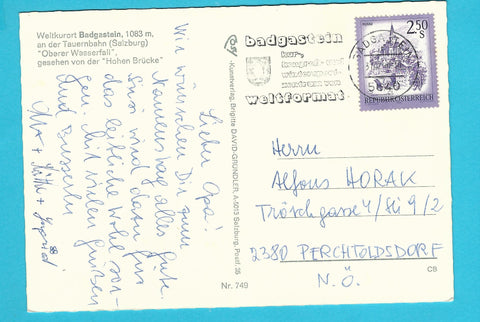 Weltkurort Badgastein, 1083 m,
an der Tauernbahn (Salzburg)
"Oberer Wasserfall",
gesehen von der "Hohen Brücke"
Lieber Opa!
Wir wünschen Dir zum
Namenstag alles Gute.
Susi wird dann für
das leibliche Wohl sor-
gen. Mit vielen Grüßen
und Busserln
-Kunstverlag, Brigitte DAVID-GRÜNDLER, A-5013 Salzburg, Postf. 35
Nr. 749
badgastein
kur-
kongreß- und
wintersport-
zentrum von
weltformat
BADGASTEIN
5640
2.50
S
REPUBLIK ÖSTERREICH
Herrn
Alfons HORAK
Tröschgasse 4/Sti 9/2
2380 PERCHTOLDSDORF
N.Ö.
CB